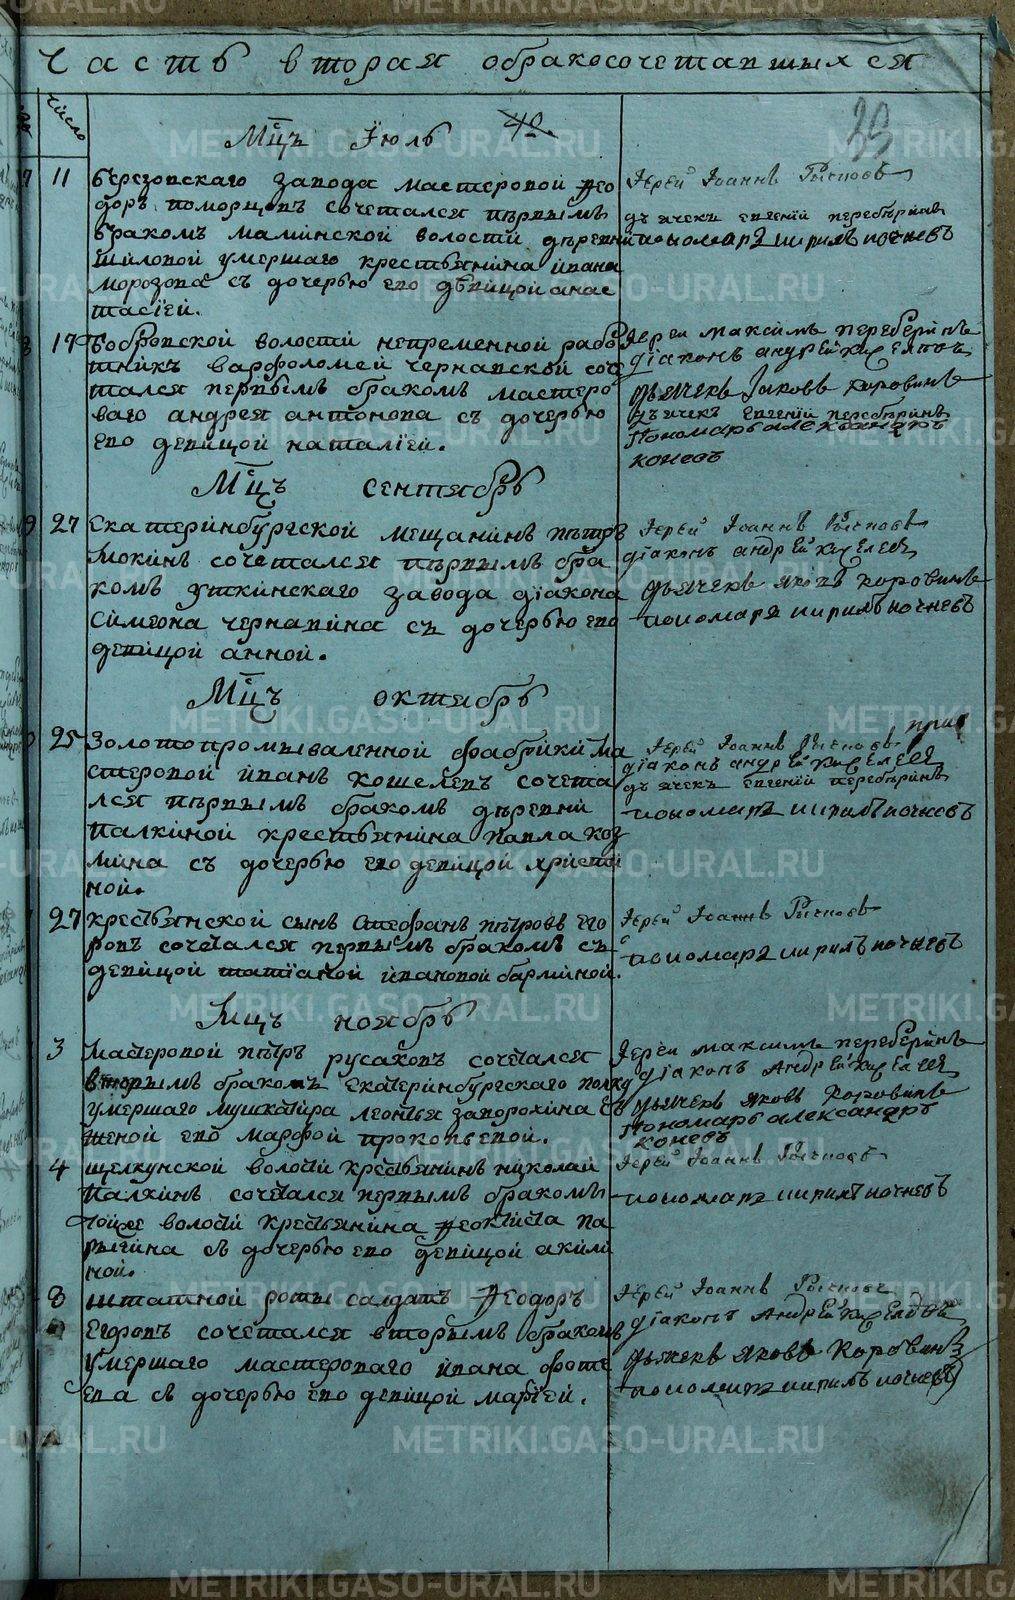 Часть вторая обракосочетавшихся
число
Мцъ Iюль
40.
39
11 березовскаго завода мастеровой Ѳео
доръ поморцовъ сочетался пѣрвымъ
бракомъ маминской волости дѣревни
шиловой умершаго крестьянина ивана
морозова съ дочерью его дѣвицой анас
тасiей.
Iерей Iоаннъ
дьячекъ евгенiй переберинъ
пономарь кирилъ кочневъ
17 Бобровской волости непременной рабо
тникъ варфоломей чернавской соче
тался первымъ бракомъ мастеро
ваго андрея антонова съ дочерью
его девицой наталiей.
Iерей максимъ переберинъ
дiаконъ андрей
дьячекъ Iаковъ коровинъ
дьячекъ евгенiй переберинъ
пономарь александръ
коневъ
Мцъ сентябрь
27 Екатеринбургской мещанинъ пѣтръ
мокинъ сочетался пѣрвымъ бра
комъ уткинскаго завода дiакона
симеона чернавина съ дочерью его
девицой анной.
Iерей Iоаннъ
дiаконъ андрей
дьячекъ яковъ коровинъ
пономарь кирилъ кочневъ
Мцъ октябрь
25 Золотопромываленной фабрики ма
стеровой иванъ кошелевъ сочета
лся пѣрвымъ бракомъ дѣревни
палкиной крестьянина павла коз
мина съ дочерью его девицой христи
ной.
Iерей Iоаннъ
дiаконъ андрей
дьячекъ евгенiй переберинъ
пономарь кирилъ кочневъ
27 крестьянской сынъ стефанъ пѣтровъ его
ровъ сочетался первымъ бракомъ съ
девицой татiаной ивановой барминой.
Iерей Iоаннъ
пономарь кирилъ кочневъ
Мцъ ноябрь
3 мастеровой пѣтръ русаковъ сочетался
вторымъ бракомъ екатеринбургскаго полку
умершаго мушкатира леонтья запорожина съ
женой его марфой прокопьевой.
Iерей максимъ переберинъ
дiаконъ Андрей
дьячекъ яковъ коровинъ
пономарь александръ
коневъ
4 щелкунской волости крестьянинъ николай
палкинъ сочетался первымъ бракомъ
тойже волости крестьянина Ѳеоктиста па
рыгина съ дочерью его девицой акили
ной.
Iерей Iоаннъ
пономарь кирилъ кочневъ
8 штатной роты салдатъ Ѳеодоръ
Егоровъ сочетался вторымъ бракомъ
умершаго мастероваго ивана фоте
ева съ дочерью его девицой марiей.
Iерей Iоаннъ
дiаконъ Андрей
дьячекъ яковъ коровинъ
пономарь кирилъ кочневъ
METRIKI.GASO-URAL.RU